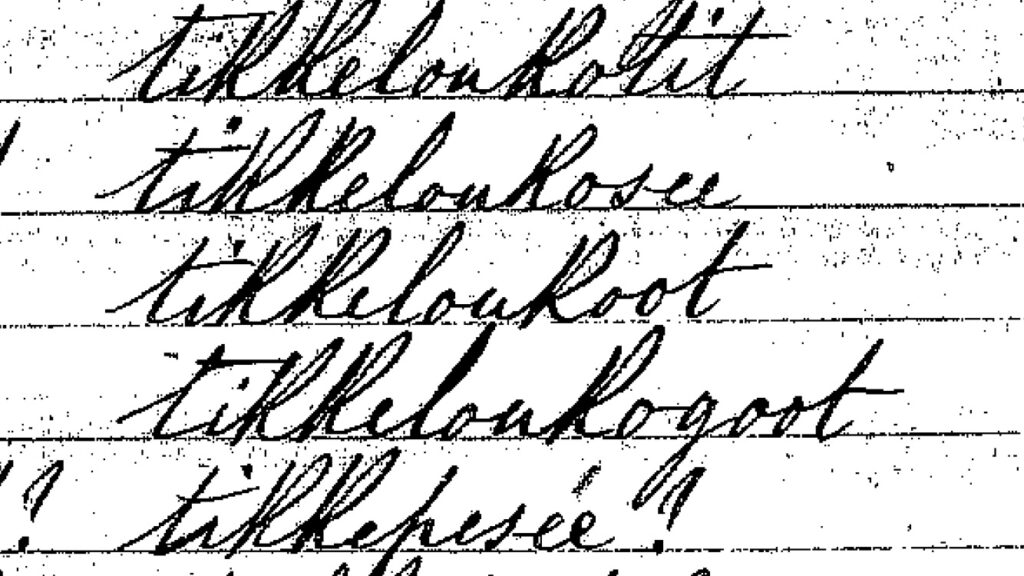 tikkeloukotit
tikkeloukosee
tikkeloukoot
tikkeloukogoot
tikkepesée!